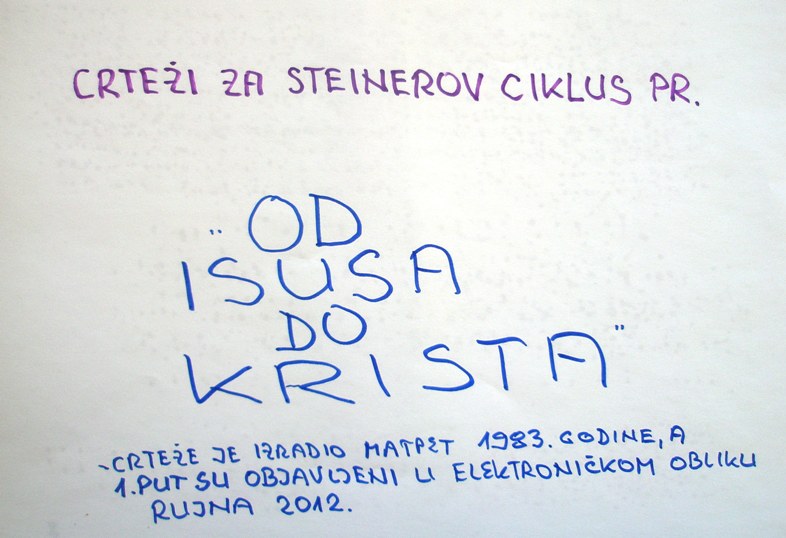 CRTEŽI ZA STEINEROV CIKLUS PR.
"OD
ISUSA
DO
KRISTA"
-CRTEŽE JE IZRADIO MATPET 1983. GODINE, A
1. PUT SU OBJAVLJENI U ELEKTRONIČKOM OBLIKU
RUJNA 2012.